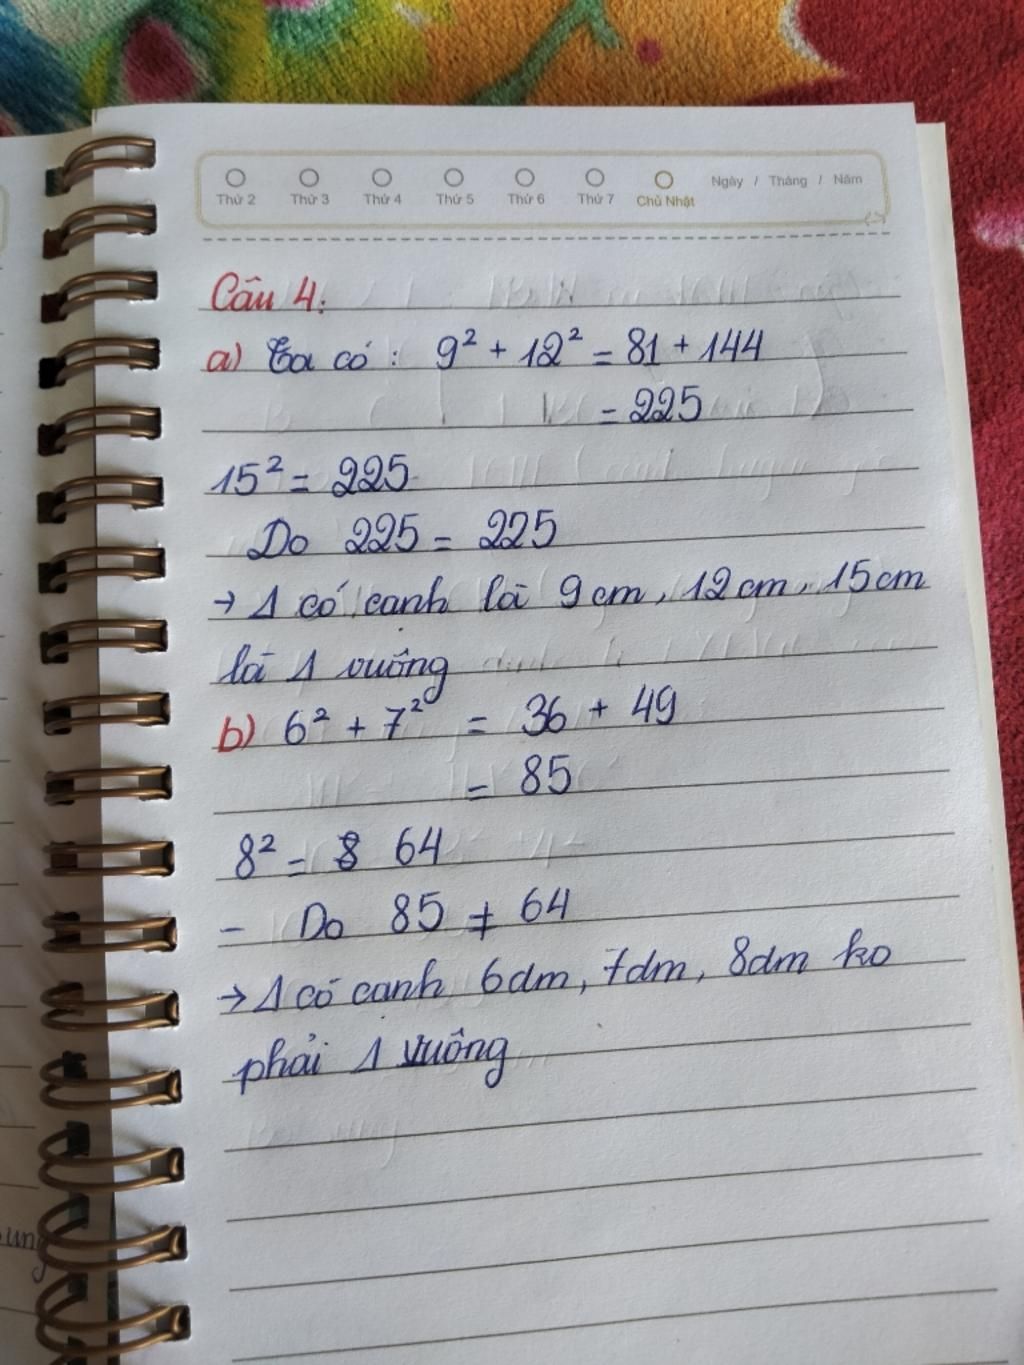 Thứ 2 Thứ 3 Thứ 4 Thứ 5 Thứ 6 Thứ 7 Chủ Nhật Ngày / Tháng / Năm
Câu 4:
a) Ta có: 9² + 12² = 81 + 144
= 225
15² = 225
Do 225 = 225
→ Δ có cạnh là 9cm, 12cm, 15cm
là Δ vuông
b) 6² + 7² = 36 + 49
= 85
8² = 64
- Do 85 ≠ 64
→ Δ có cạnh 6dm, 7dm, 8dm ko
phải Δ vuông